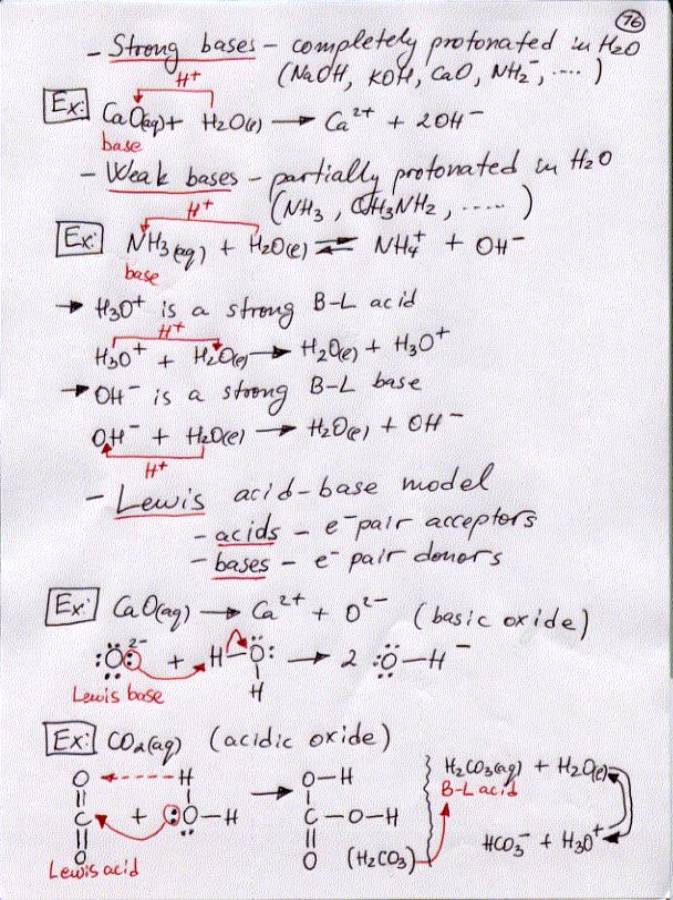 76
- Strong bases - completely protonated in H2O
(NaOH, KOH, CaO, NH2⁻, .... )
H⁺
Ex: CaO(aq) + H2O(l) → Ca²⁺ + 2OH⁻
base
- Weak bases - partially protonated in H2O
(NH3, CH3NH2, ..... )
H⁺
Ex: NH3(aq) + H2O(l) ⇌ NH4⁺ + OH⁻
base
→ H3O⁺ is a strong B-L acid
H⁺
H3O⁺ + H2O(l) → H2O(l) + H3O⁺
→ OH⁻ is a strong B-L base
OH⁻ + H2O(l) → H2O(l) + OH⁻
H⁺
- Lewis acid-base model
- acids - e⁻pair acceptors
- bases - e⁻ pair donors
Ex: CaO(aq) → Ca²⁺ + O²⁻ (basic oxide)
:Ö:²⁻ + H-Ö: → 2 :Ö-H⁻
H
Lewis base
Ex: CO2(aq) (acidic oxide)
O H O-H H2CO3(aq) + H2O(l)
B-L acid
C + :O-H → C-O-H
HCO3⁻ + H3O⁺
O O (H2CO3)
Lewis acid